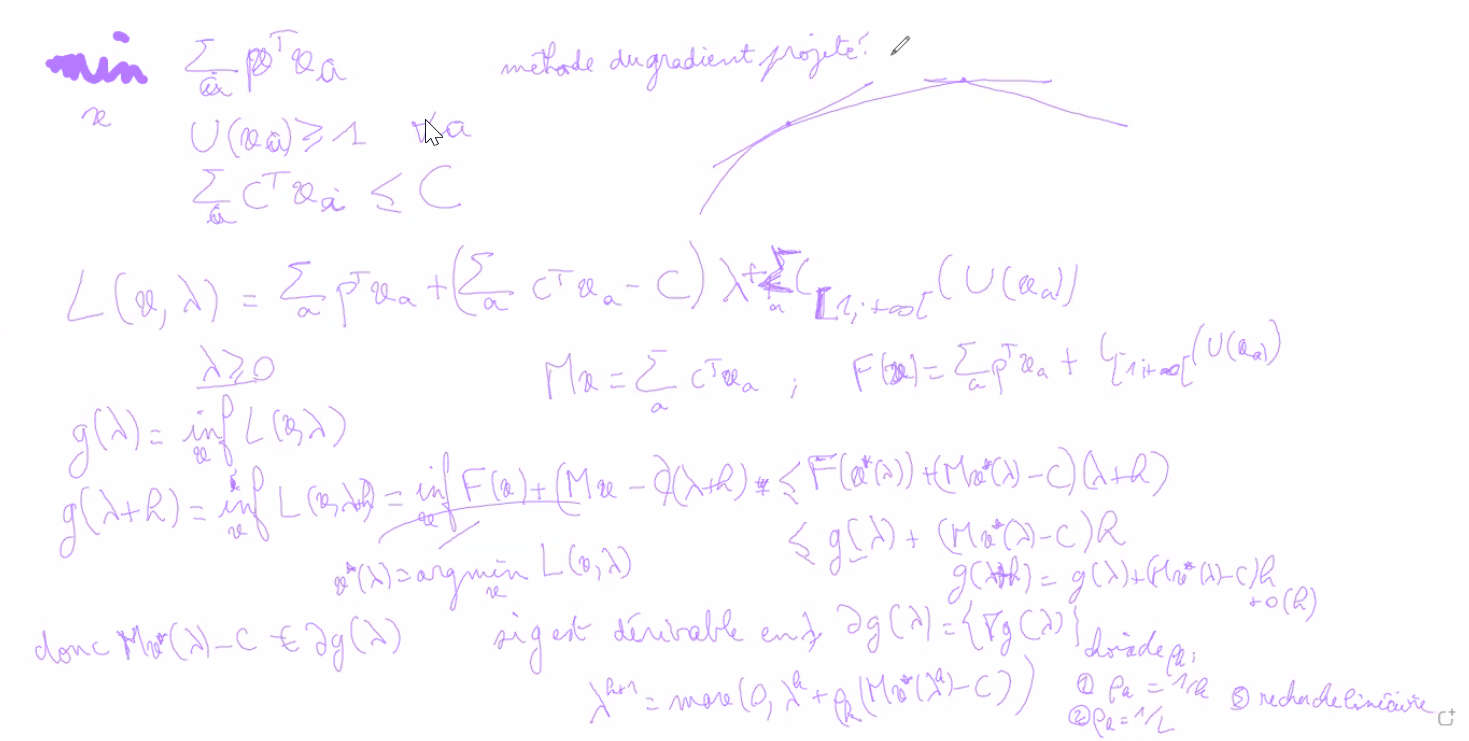 min_x Σ_a p^T x_a
méthode du gradient projeté :
U(x_a) ≥ 1 ∀a
Σ_a c^T x_a ≤ C
L(x, λ) = Σ_a p^T x_a + (Σ_a c^T x_a - C) λ + Σ_a ι_[1;+∞[ (U(x_a))
λ ≥ 0
Mx = Σ_a c^T x_a ; F(x) = Σ_a p^T x_a + ι_[1;+∞[ (U(x_a))
g(λ) = inf_x L(x, λ)
g(λ+h) = inf_x L(x, λ+h) = inf_x F(x) + (Mx - C)(λ+h) ≤ F(x*(λ)) + (Mx*(λ) - C)(λ+h)
≤ g(λ) + (Mx*(λ) - C)h
x*(λ) = argmin_x L(x, λ)
g(λ+h) = g(λ) + (Mx*(λ) - C)h
+ o(h)
donc Mx*(λ) - C ∈ ∂g(λ) si g est dérivable en λ, ∂g(λ) = {∇g(λ)}
λ^{k+1} = max(0, λ^k + ρ_k (Mx*(λ^k) - C))
choix de ρ_k :
① ρ_k = 1/k
② ρ_k = 1/L
③ recherche linéaire